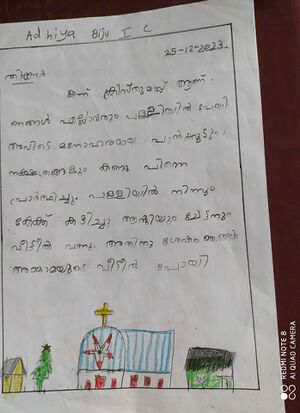 Adhiya Biju I C
25-12-2023
തിങ്കൾ
ഇന്ന് ക്രിസ്തുമസ്സ് ആണ്.
ഞങ്ങൾ എല്ലാവരും പള്ളിയിൽ പോയി
അവിടെ മനോഹരമായ പുൽക്കൂടും,
നക്ഷത്രങ്ങളും കണ്ടു പിന്നെ
പ്രാർത്ഥിച്ചു. പള്ളിയിൽ നിന്നും
കേക്ക് കഴിച്ചു ഞാനും ചേട്ടനും
വീട്ടിൽ വന്നു. അതിനു ശേഷം ഞങ്ങൾ
അമ്മാമയുടെ വീട്ടിൽ പോയി
REDMI NOTE 8
AI QUAD CAMERA